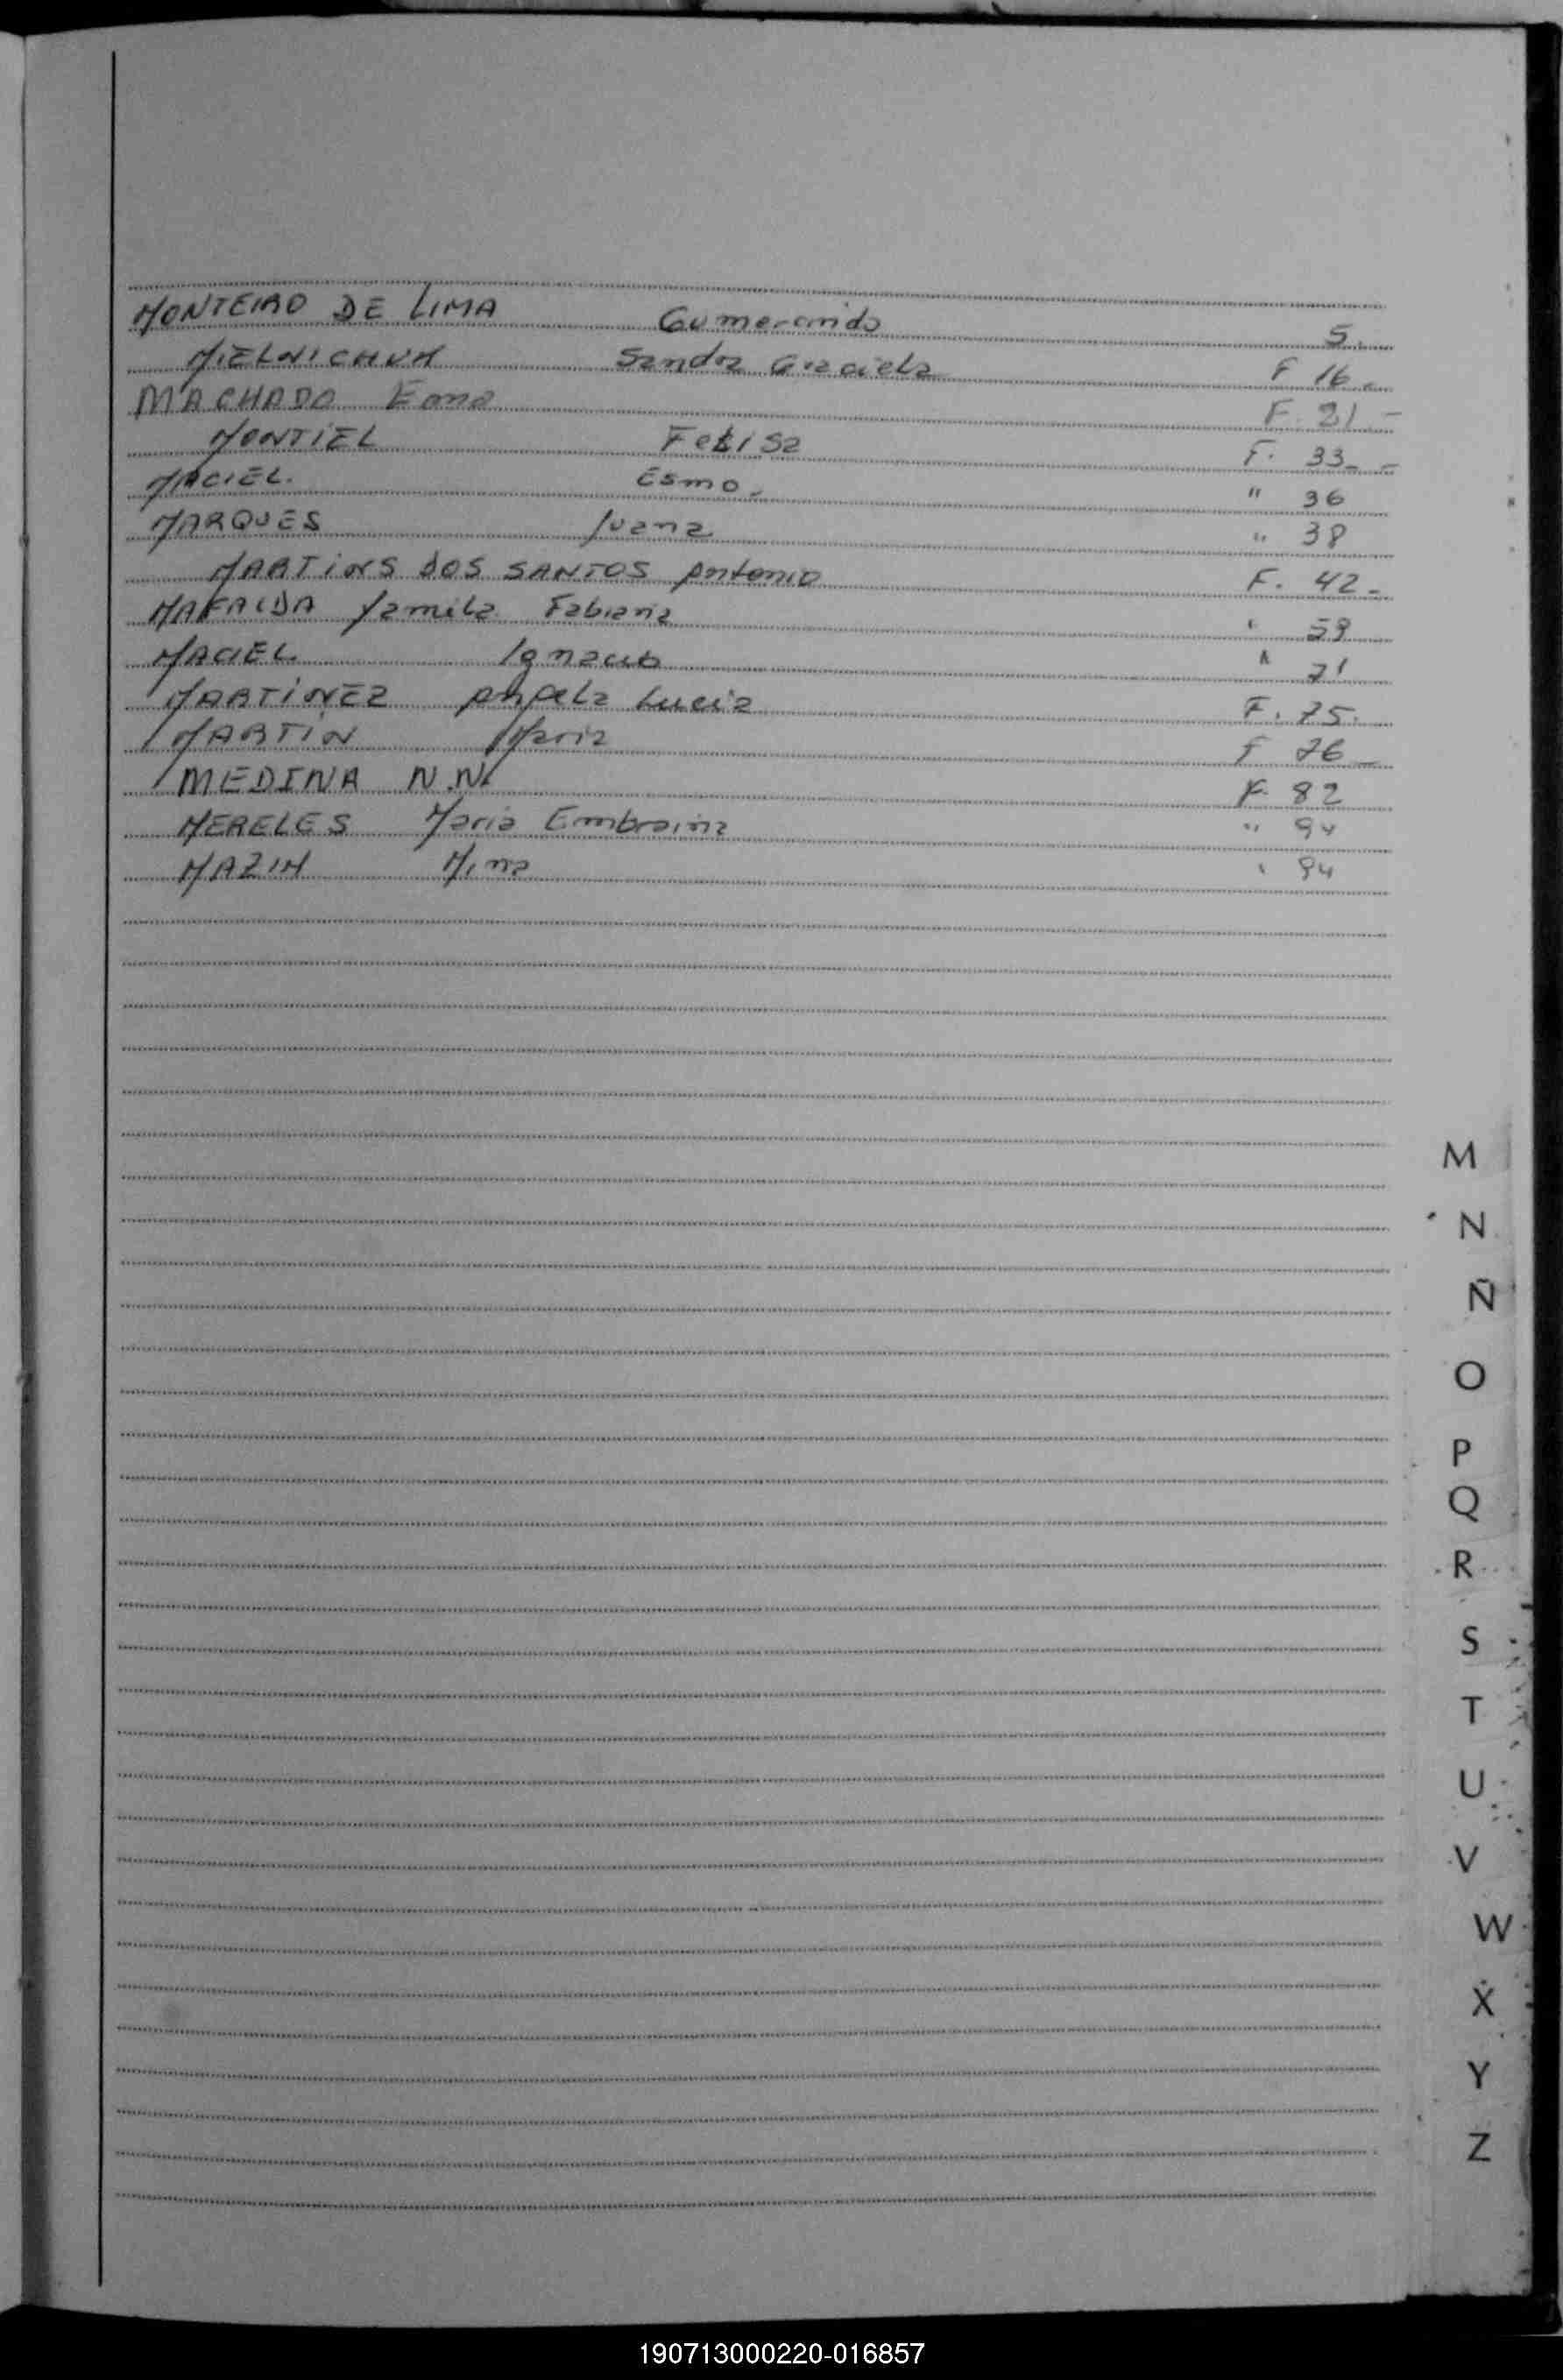 MONTEIRO DE LIMA Gumercindo 5.
MIELNICHUK Sandra Graciela F 16.
MACHADO Ema F. 21 -
MONTIEL Felisa F. 33 - -
MACIEL. Esmo. " 36
MARQUES Juana " 38
MARTINS DOS SANTOS Antonio F. 42 -
MAFALDA Yamila Fabiana " 59
MACIEL Ignacio " 71
MARTINEZ Angela Lucia F. 75.
MARTIN Maria F 76 -
MEDINA N.N. F. 82
MERELES Maria Embraina " 94
MAZIM Mima " 94
M
N
Ñ
O
P
Q
R
S
T
U
V
W
X
Y
Z
190713000220-016857